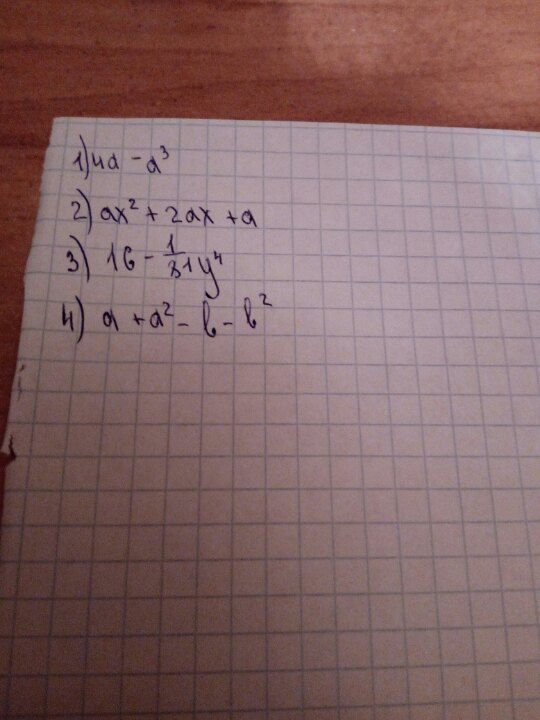 1) 4a - a³
2) ax² + 2ax + a
3) 16 - 1/81 y⁴
4) a + a² - b - b²